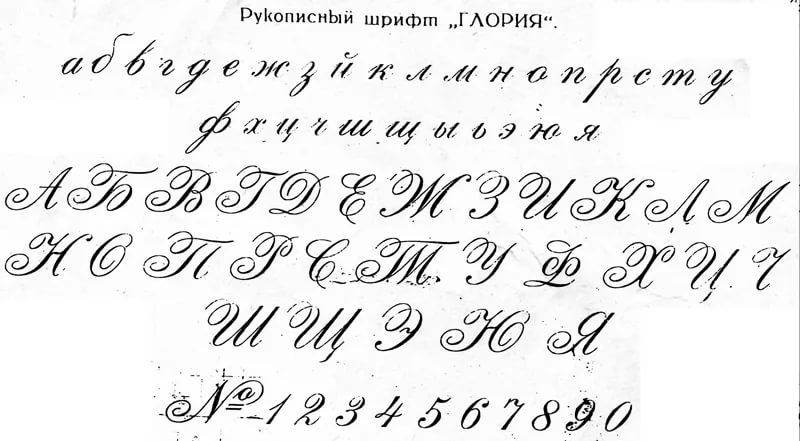 Рукописный шрифт „ГЛОРИЯ“.
а б в г д е ж з й к л м н о п р с т у
ф х ц ч ш щ ы ь э ю я
А Б В Г Д Е Ж З И К Л М
Н О П Р С Т У Ф Х Ц Ч
Ш Щ Э Ю Я
№ 1 2 3 4 5 6 7 8 9 0